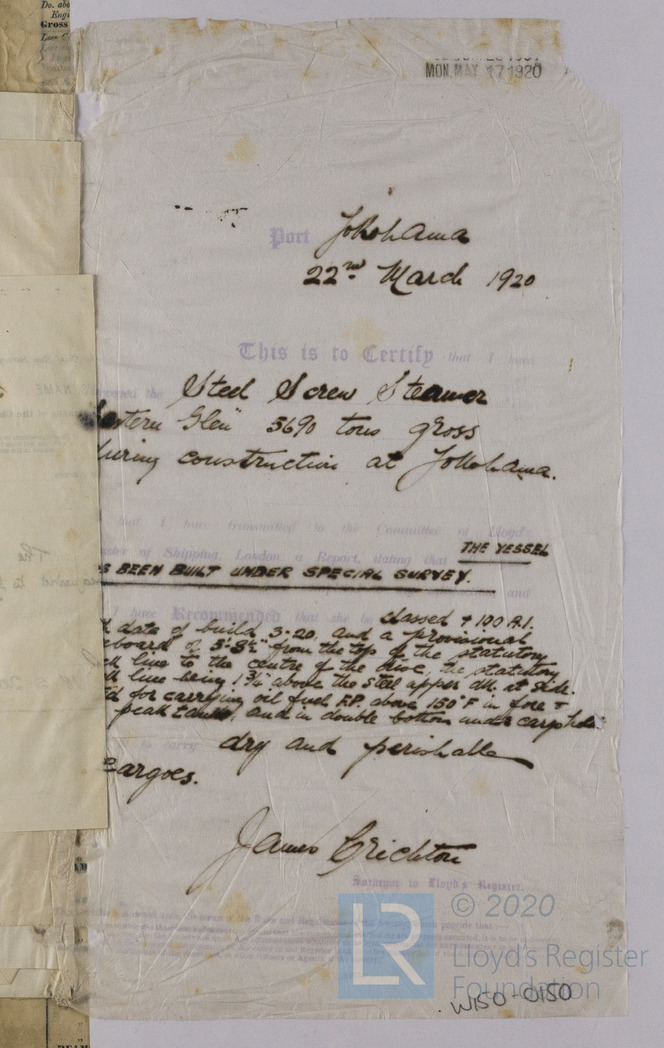 Do. abo
Engi
Gross
MON. MAY 17 1920
Port Yokohama
22nd March 1920
This is to Certify that I have
the Steel Screw Steamer
stern Glen" 5690 tons gross
during construction at Yokohama.
that I have transmitted to the Committee of Lloyd's
ster of Shipping, London a Report, stating that THE VESSEL
S BEEN BUILT UNDER SPECIAL SURVEY.
and
I have Recommended that she be classed + 100 A.1.
date of build 3-20, and a provisional
eboard of 5'-8½" from the top of the statutory
ck line to the centre of the disc, the statutory
k line being 1¾" above the steel upper dk. at side.
td for carrying oil fuel F.P. above 150°F in fore &
peak tanks, and in double bottom under cargo holds
to carry dry and perishable
cargoes.
James Crichton
Surveyor to Lloyd's Register.
LR
© 2020
Lloyd's Register
Foundation
W150-0150